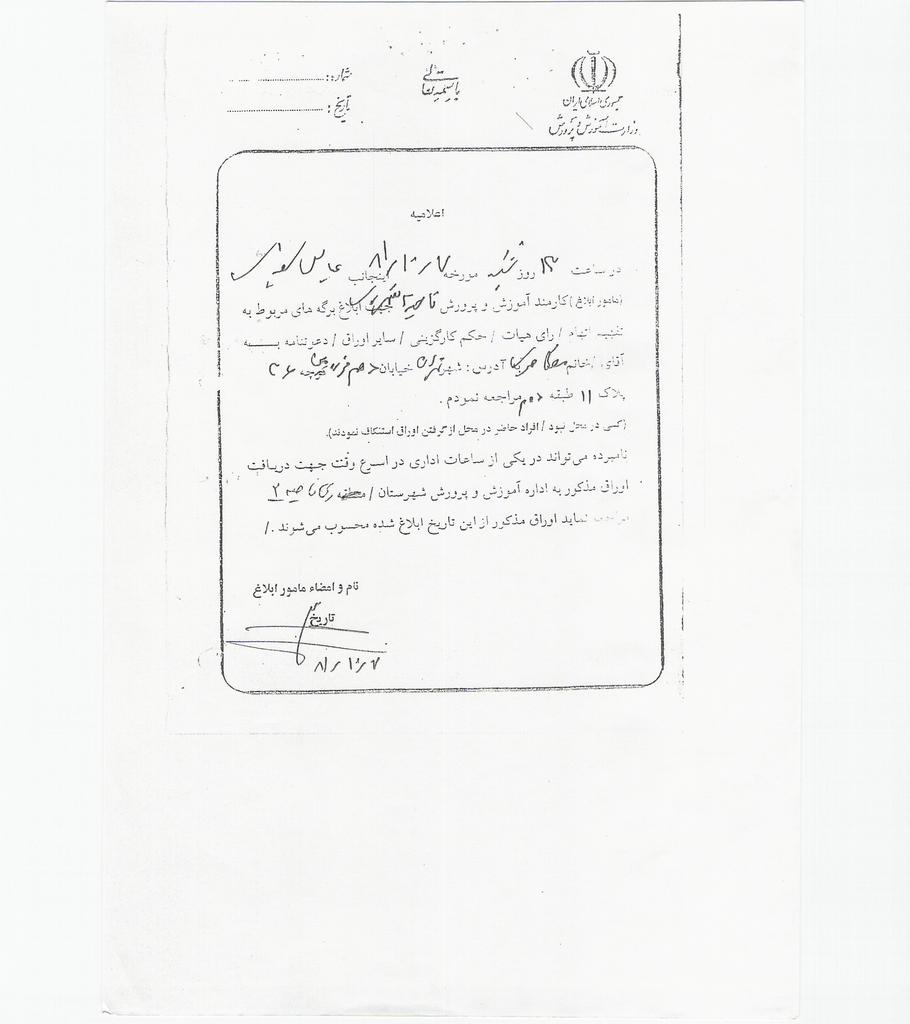 باسمه تعالی
جمهوری اسلامی ایران
وزارت آموزش و پرورش
شماره:
تاریخ:
اعلامیه
در ساعت ۱۳ روز شنبه مورخه ۸۱/۱۰/۷ اینجانب
(مامور ابلاغ) کارمند آموزش و پرورش جهت ابلاغ برگه های مربوط به
تفهیم اتهام / رای هیات / حکم کارگزینی / سایر اوراق / دعوتنامه به
آقای / خانم آدرس: شهر تهران خیابان کوچه
پلاک ۱۱ طبقه دوم مراجعه نمودم.
(کسی در محل نبود / افراد حاضر در محل از گرفتن اوراق استنکاف نمودند).
نامبرده می‌تواند در یکی از ساعات اداری در اسرع وقت جهت دریافت
اوراق مذکور به اداره آموزش و پرورش شهرستان / منطقه ناحیه ۲
مراجعه نماید اوراق مذکور از این تاریخ ابلاغ شده محسوب می‌شوند ./
نام و امضاء مامور ابلاغ
تاریخ
۸۱/۱۰/۷